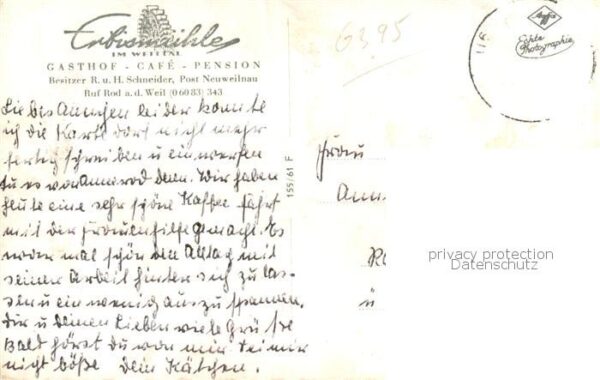 Erbismühle
IM WEILTAL
GASTHOF - CAFÉ - PENSION
Besitzer R. u. H. Schneider, Post Neuweilnau
Ruf Rod a. d. Weil (0 60 83) 343
Liebes Annchen leider konnte
ich die Karte dort nicht mehr
fertig schreiben u einwerfen
tu es von Annerod denn. Wir haben
heute eine sehr schöne Kaffee fahrt
mit der Frauenhilfe gemacht. Es
war mal schön den Alltag mit
seiner Arbeit hinter sich zu las-
sen u ein wenig auszuspannen.
Dir u deinen Lieben viele Grüße
Bald hörst Du von mir sei mir
nicht böße Dein Kätchen.
6395
155/61 F
Frau
Ann
ü
Agfa
Echte
Photographie
privacy protection
Datenschutz